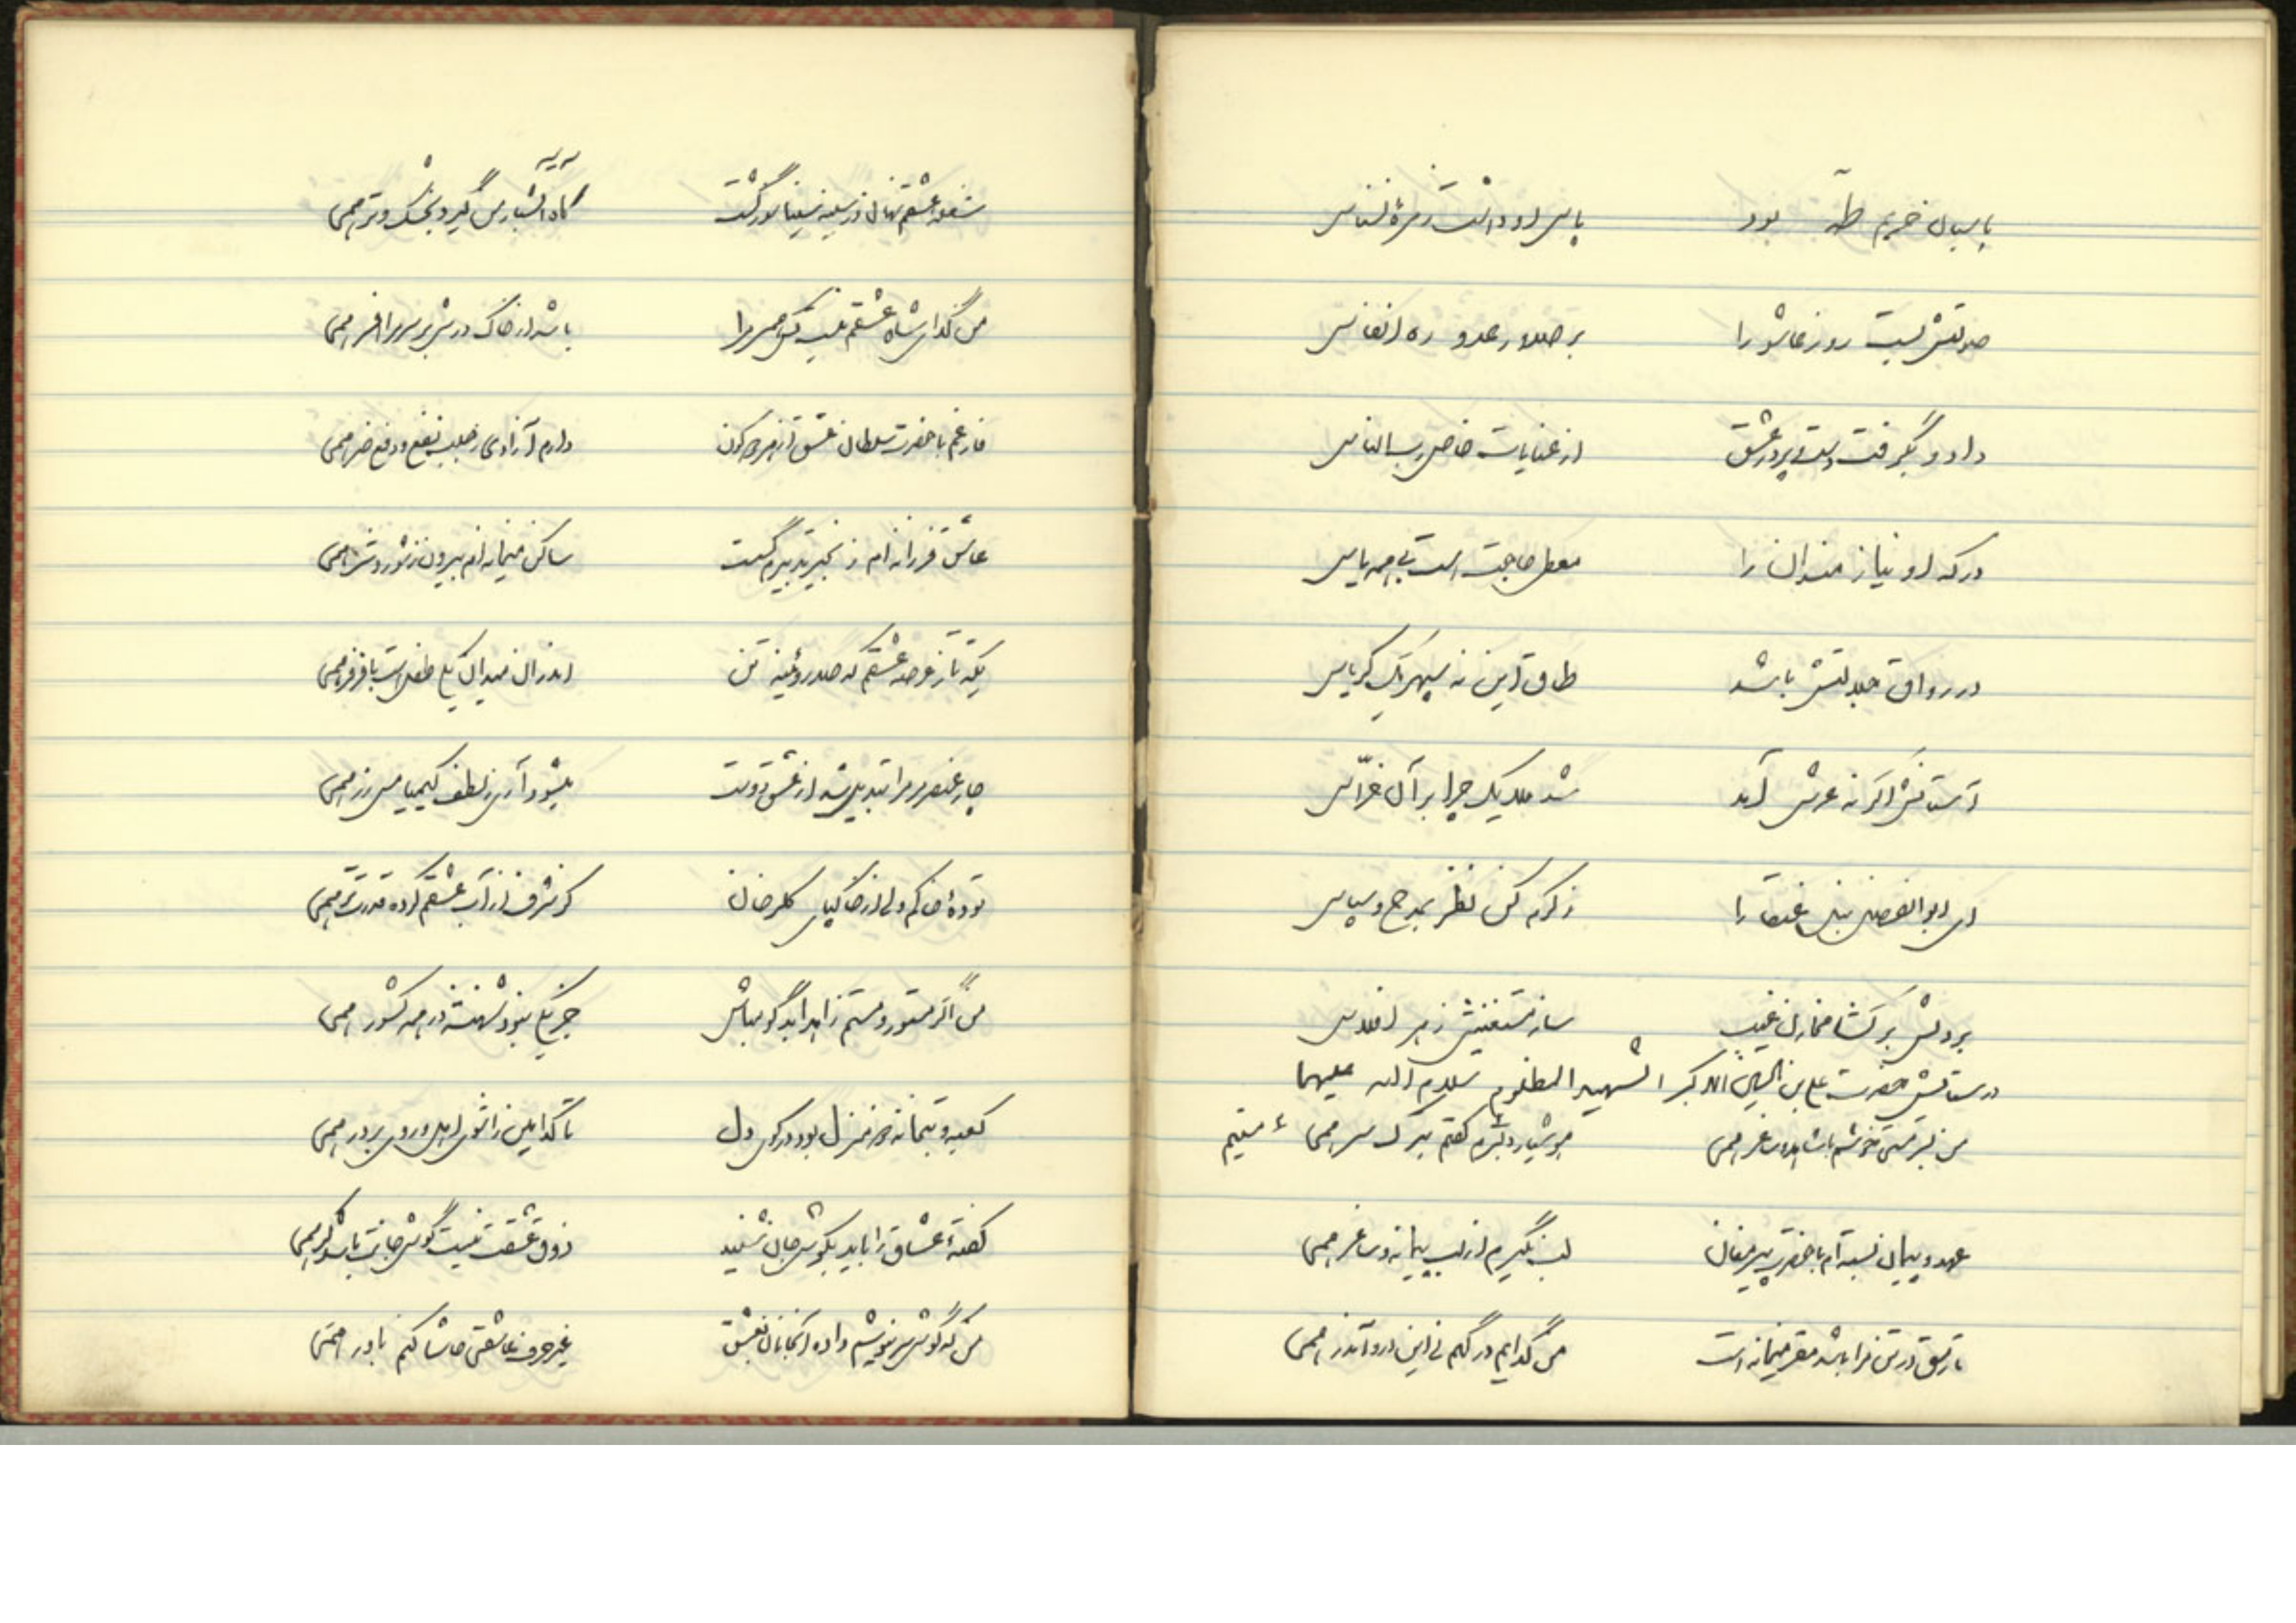 پاسبان حریم طه بود پاس او داشت زمرهٔ نسناس
صولتش بست روز عاشورا بر صدور عدو ره انفاس
داد و بگرفت دست در ره عشق از عنایات خاص رب الناس
درگه او نیازمندان را معطی حاجت است بی همه یاس
در رواق جلالتش باشد طاق این نه سپهر یک کرباس
آستانش اگر نه عرش آمد شد ملایک چرا بر آن حراس
ای ابوالفضل بنده عنقا را از کرم کن نظر بمدح و سپاس
بر دلش برگشا مخازن غیب ساز مستغنیش ز هر افلاس
در ستایش حضرت علی بن الحسین الاکبر الشهید المظلوم سلام الله علیهما
من بترک هستی خوشم با شاهد و ساغر همی هوشیار دلبرم گفتم بترک سر همی
عهد و پیمان بسته‌ام با حضرت پیر مغان لب نگیرم از لب پیمانه و ساغر همی
تا رمق در تن مرا باشد مقر میخانه است من گدایم درگهم نی این در و آن در همی
شعله عشقم نهان در سینه سینا نور گشت گاه آتشبار می گیرد بخشک و تر همی
من گدای شاه عشقم نیست کس همسر مرا باشد از خاک درش بر سر مرا افسر همی
فارغم با حضرت سلطان عشق از هر دو کون دارم آزادی ز جلب نفع و دفع ضر همی
عاشق فرزانه‌ام زنجیر تدبیرم گسست ساکن میخانه‌ام بیرون ز شور و شر همی
یکه تاز عرصه عشقم که صد روئینه تن اندر آن میدان یکی طفل است با فر همی
چار عنصر مر مرا تبدیل شد از عشق دوست میشود آری ز لطف کیمیا مس زر همی
تودهٔ خاکم ولی از خاکپای گلرخان کز شرف از آب عشقم داده قدرت همی
من اگر مستور و مستم زاهدا بدگو مباش جز یکی نبود شهنشه در همه کشور همی
کعبه و بتخانه هر دو منزل بود در کوی دل تا کدامین را تو ای دل رو بری بر در همی
گفتهٔ عشاق را باید بگوش جان شنید ذوق عشقت نیست گوش جانت باشد کر همی
من که گوش سر نیوشم داده‌ام جانان بعشق غیر حرف عاشقی حاشا کنم باور همی